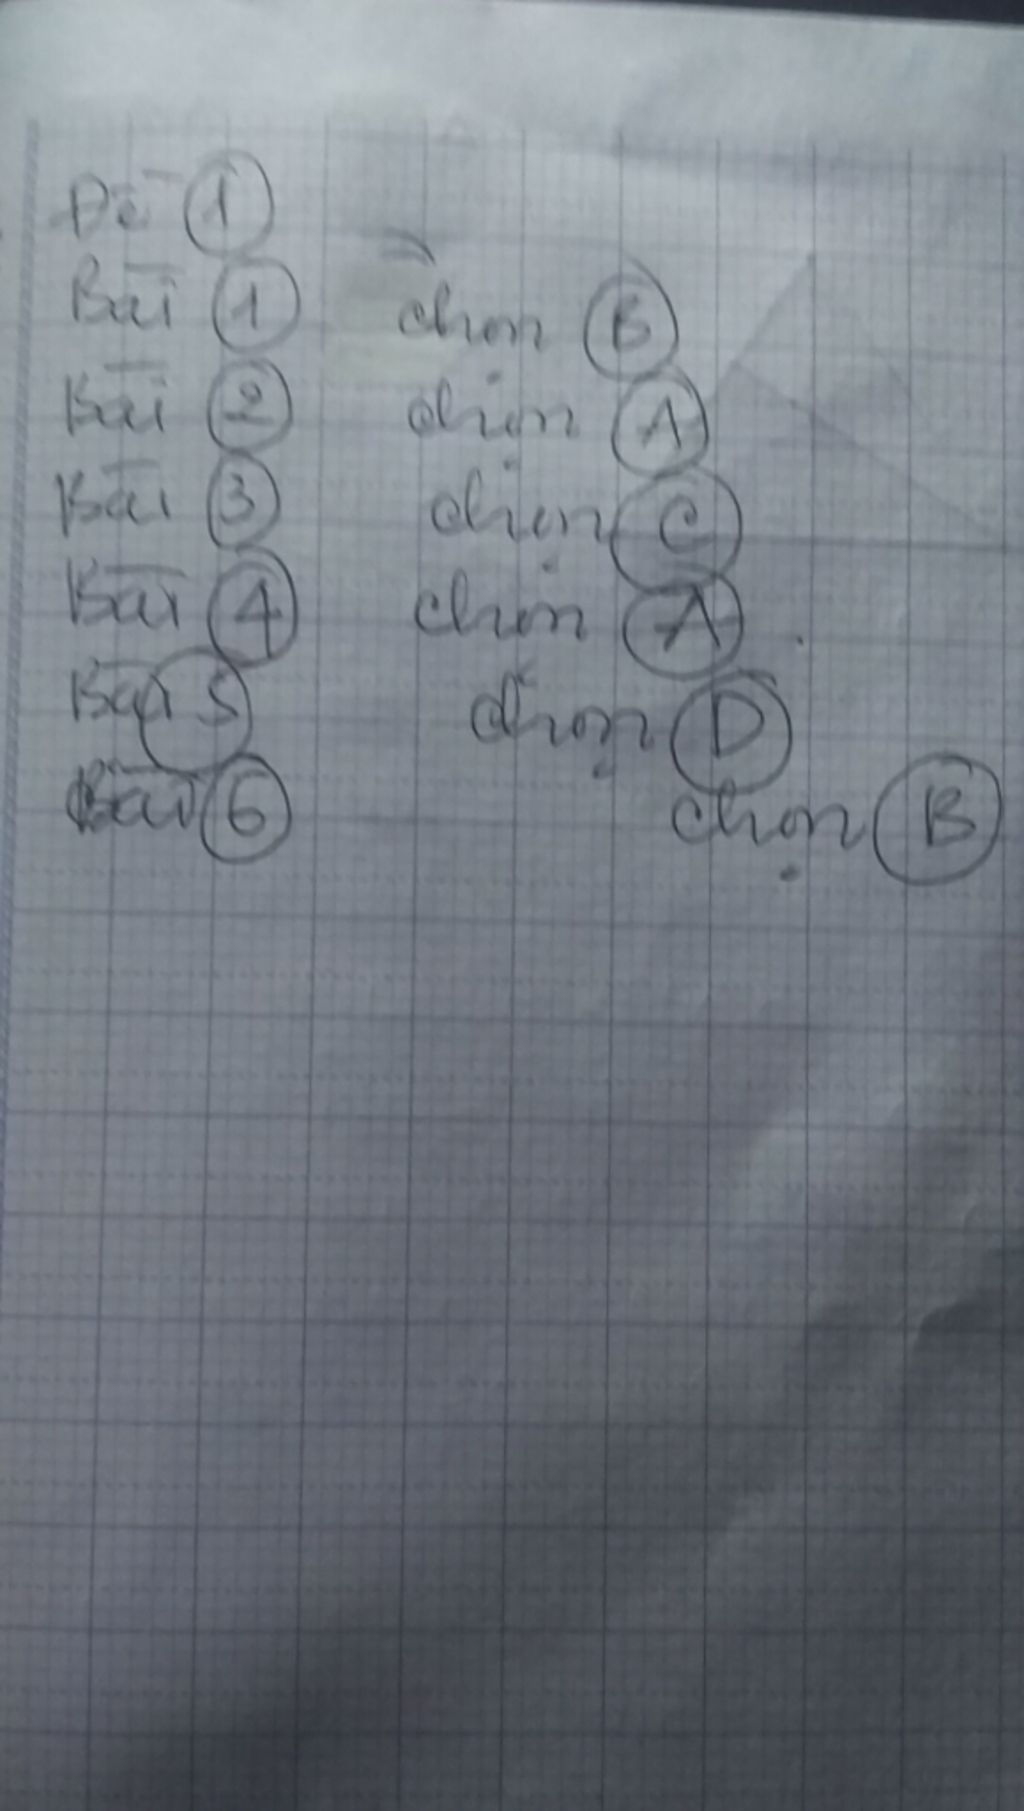 Đề 1
Bài 1 chọn B
Bài 2 chọn A
Bài 3 chọn C
Bài 4 chọn A
Bài 5 chọn D
Bài 6 chọn B